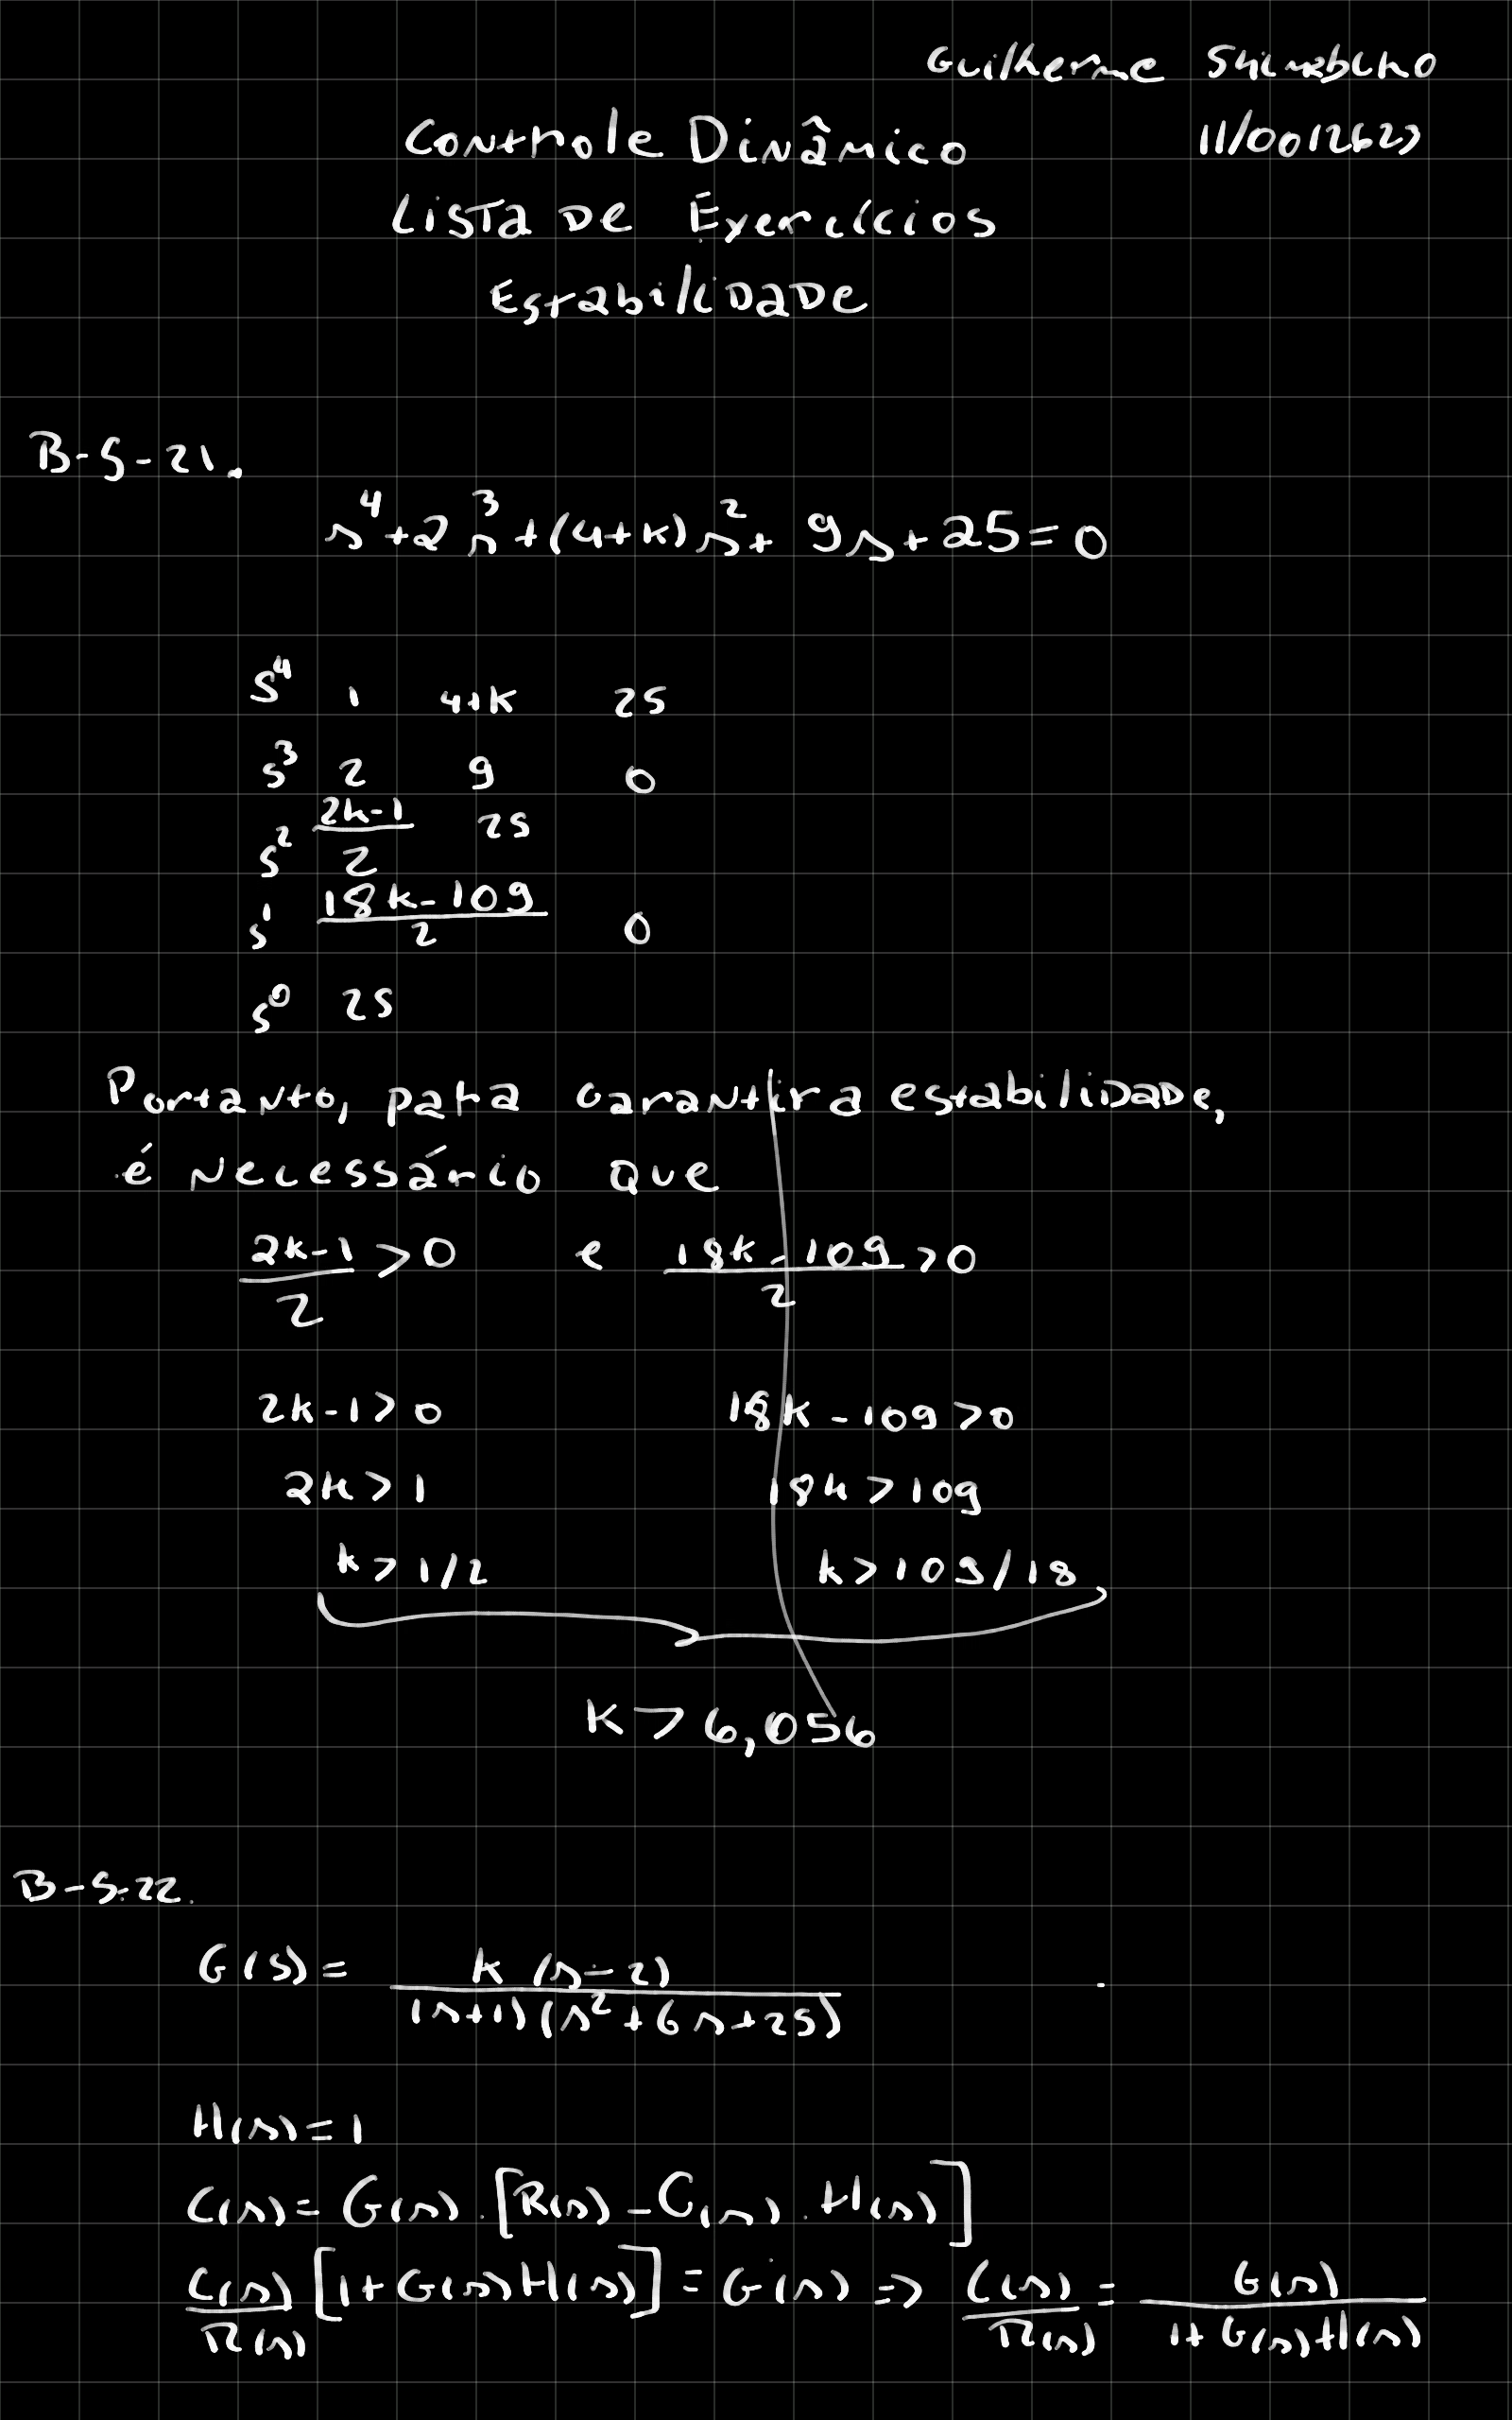 Guilherme
Controle Dinâmico
Lista de Exercícios
Estabilidade
B-5-21.
s⁴+2s³+(4+k)s²+9s+25=0
s⁴ 1 4+k 25
s³ 2 9 0
s² (2k-1)/2 25
s¹ (18k-109)/2 0
s⁰ 25
Portanto, para garantir a estabilidade,
é necessário que
(2k-1)/2 >0 e (18k-109)/2 >0
2k-1>0 18k-109>0
2k>1 18k>109
k>1/2 k>109/18
k>6,056
B-5-22.
G(s)= k(s-2)/((s+1)(s²+6s+25))
H(s)=1
C(s)=G(s).[R(s)-C(s).H(s)]
C(s)/R(s) [1+G(s)H(s)]=G(s) => C(s)/R(s) = G(s)/(1+G(s)H(s))